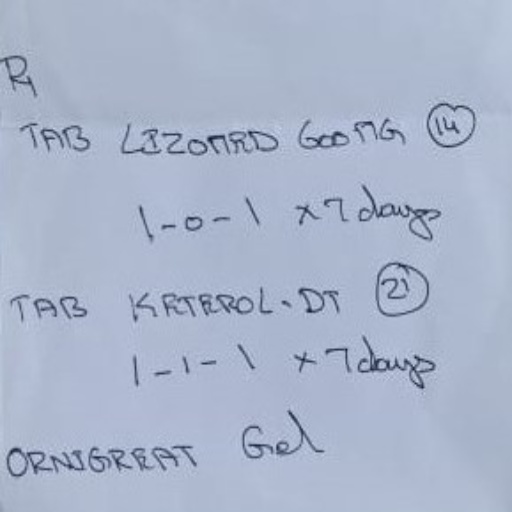 Rx
TAB LIZOMED 600MG 14
1-0-1 x 7 days
TAB KETEROL-DT 21
1-1-1 x 7 days
ORNIGREAT Gel